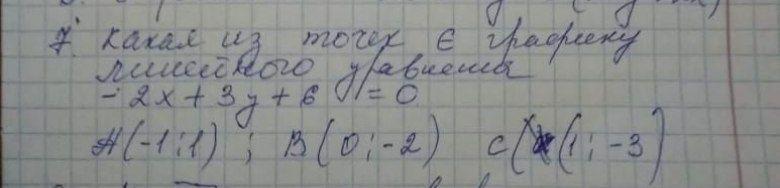 7. какая из точек ∈ графику
линейного уравнения
- 2x + 3y + 6 = 0
A(-1;1) ; B(0;-2) C((1;-3)